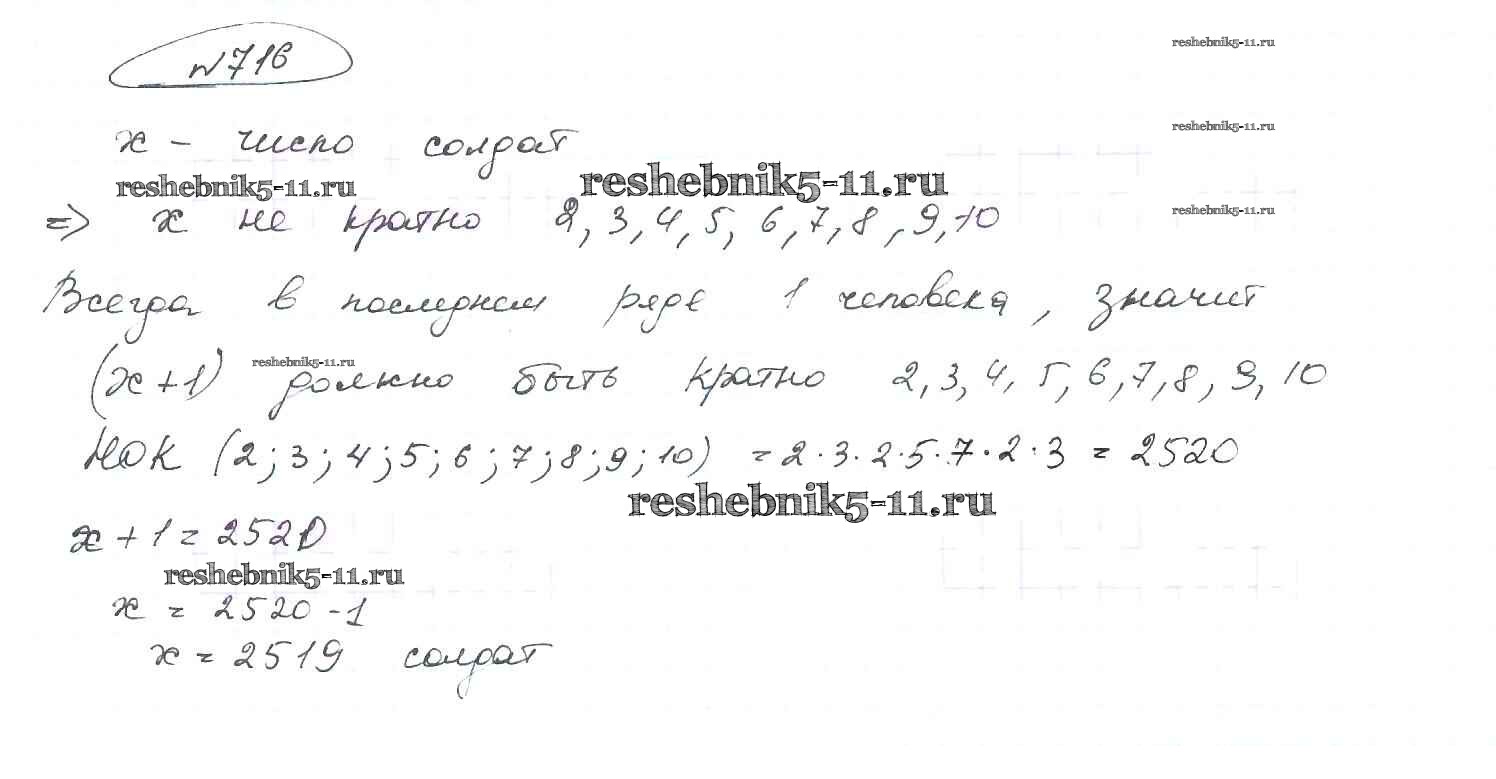 №716
reshebnik5-11.ru
x - число солдат
reshebnik5-11.ru
reshebnik5-11.ru
reshebnik5-11.ru
=> x не кратно 2, 3, 4, 5, 6, 7, 8, 9, 10
reshebnik5-11.ru
Всегда в последнем ряде 1 человека, значит
reshebnik5-11.ru
(x+1) должно быть кратно 2, 3, 4, 5, 6, 7, 8, 9, 10
НОК (2; 3; 4; 5; 6; 7; 8; 9; 10) = 2·3·2·5·7·2·3 = 2520
reshebnik5-11.ru
x + 1 = 2520
reshebnik5-11.ru
x = 2520 - 1
x = 2519 солдат